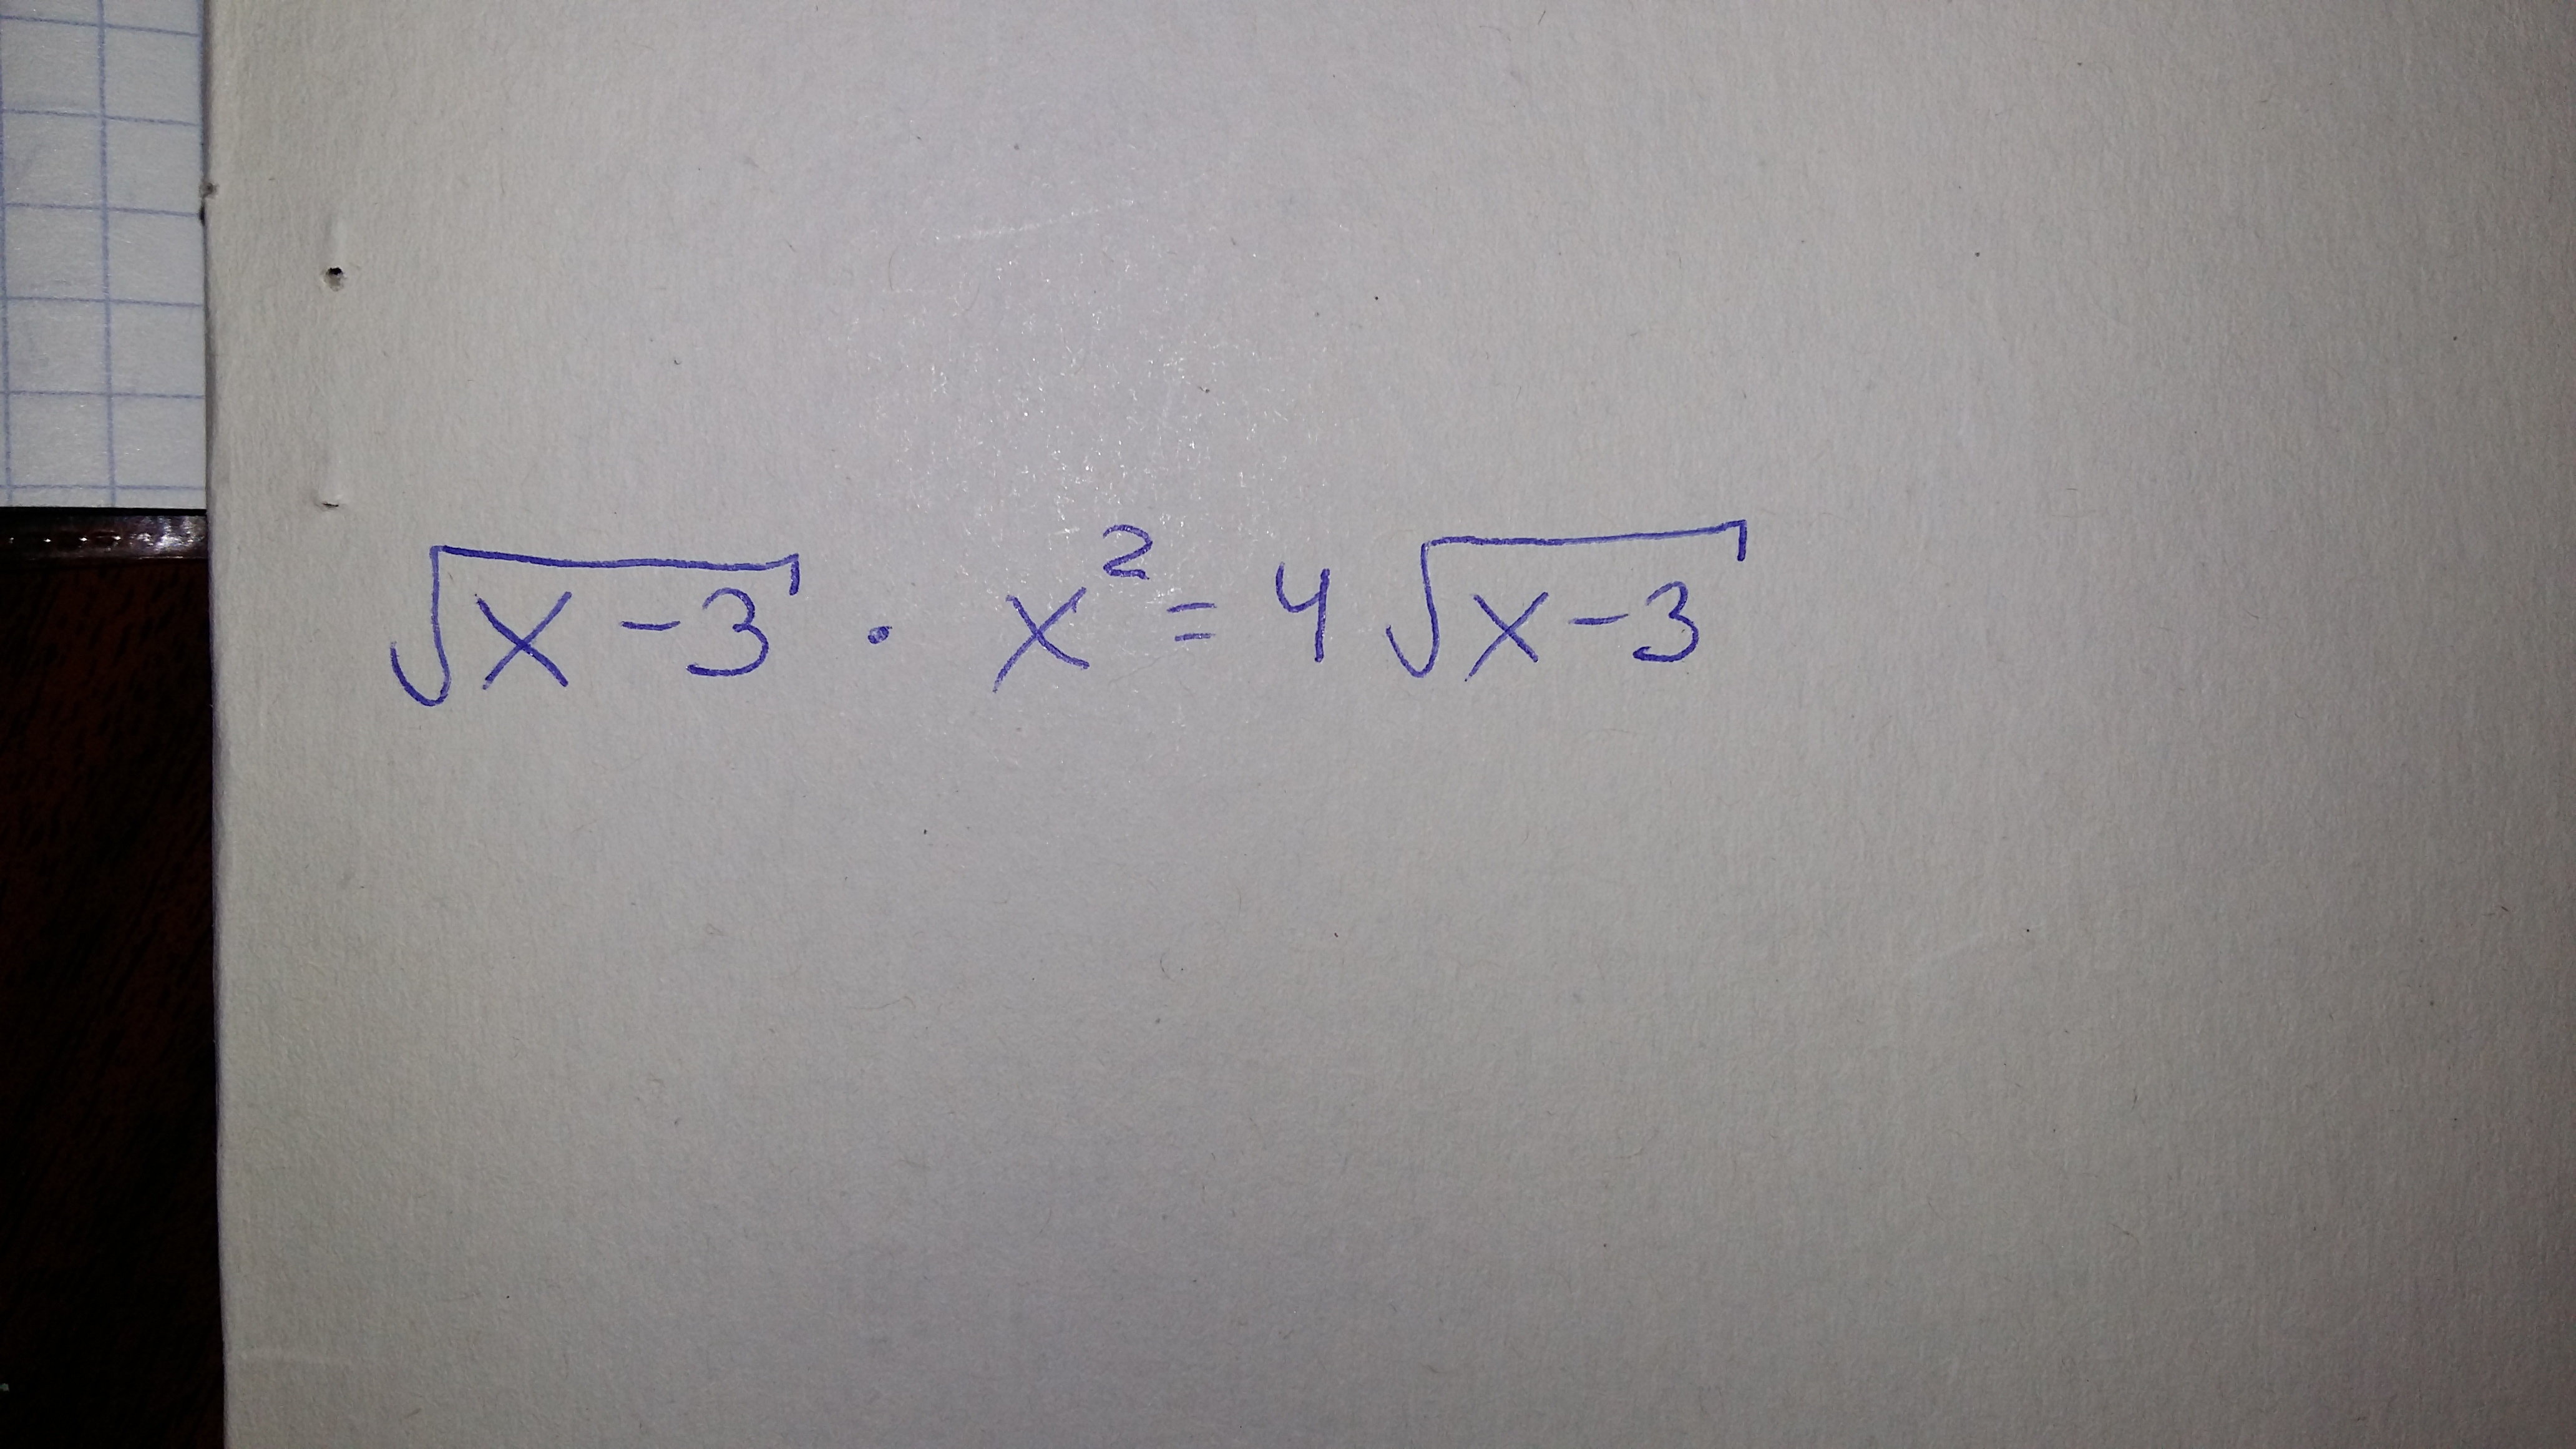 √(x-3) · x² = 4√(x-3)